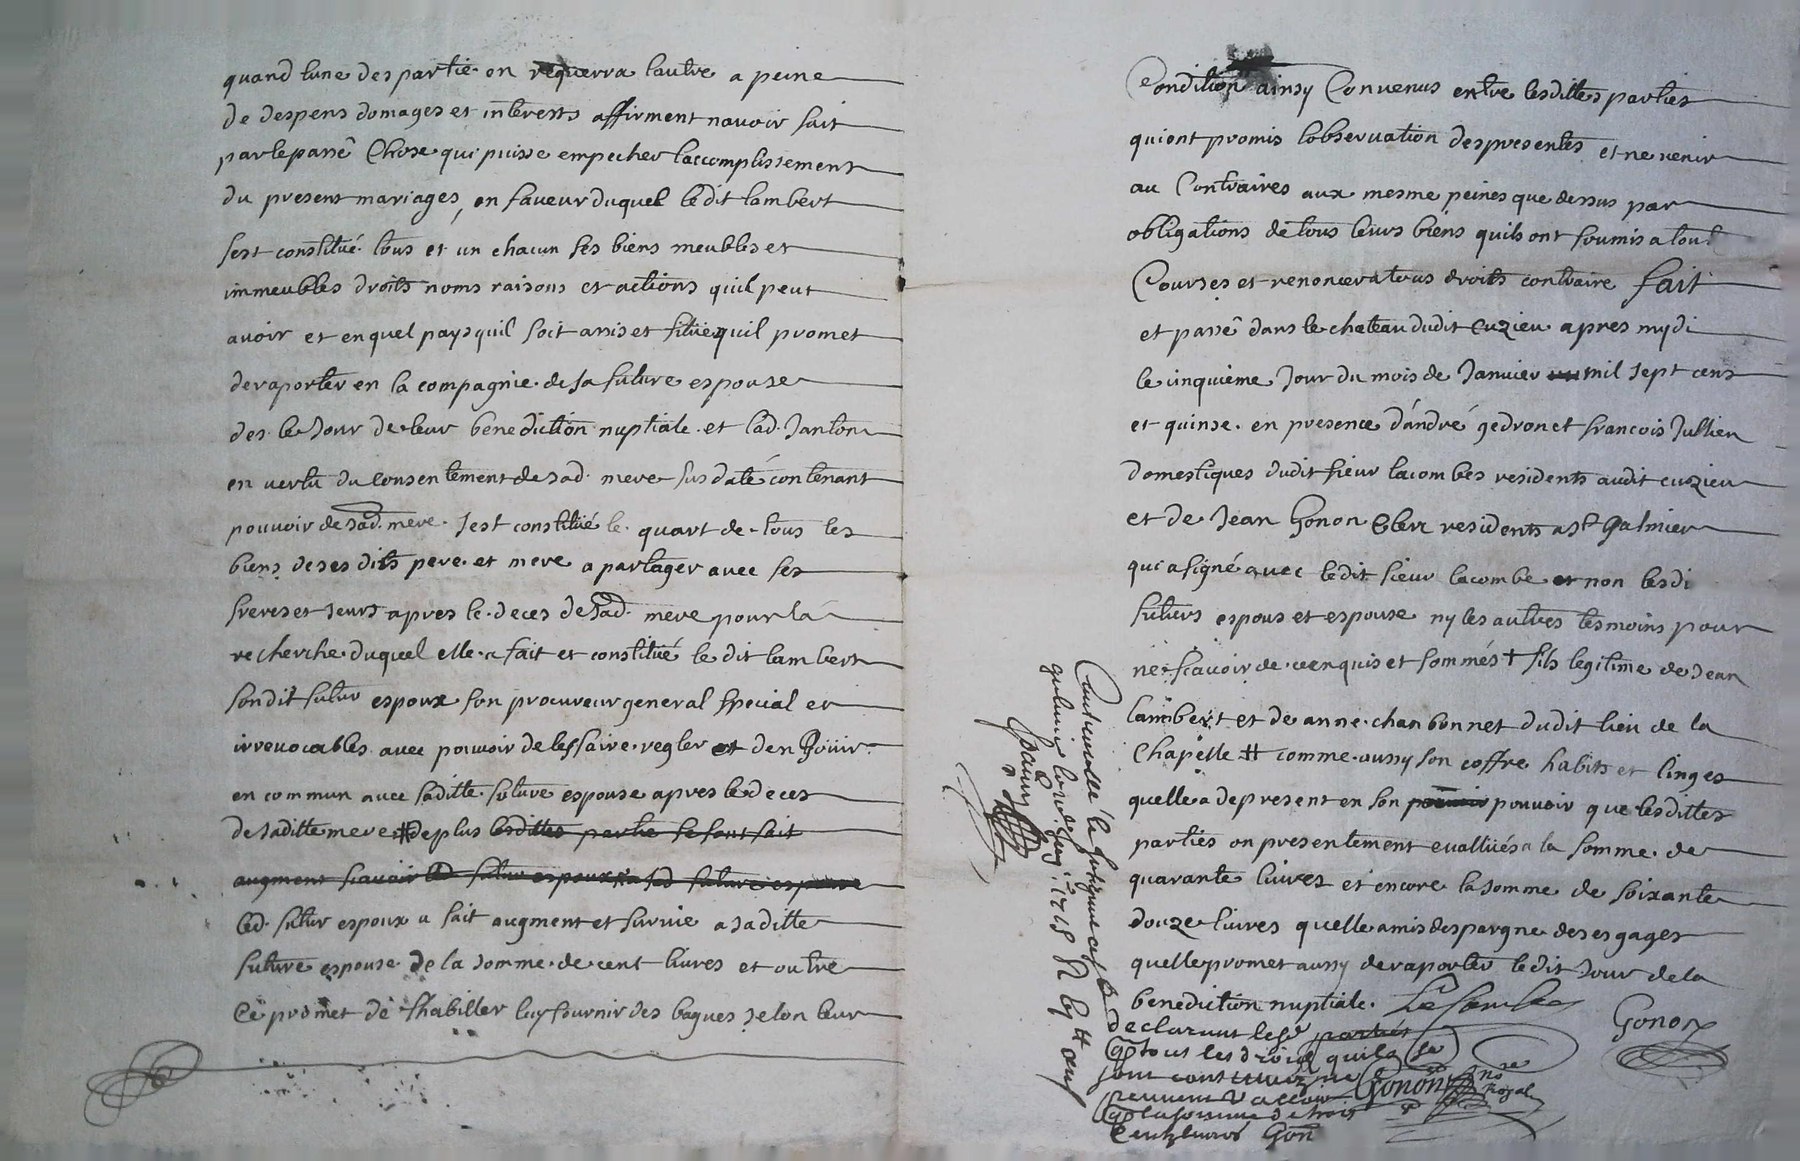 quand lune des partie en requerra lautre a peine
de despens domages et interests affirment navoir fait
par le passé Chose qui puisse empecher laccomplissement
du present mariages, en faveur duquel ledit lambert
sest constitué tous et un chacun ses biens meubles et
immeubles droits noms raisons et actions quil peut
avoir et en quel pays quil soit assis et situé quil promet
deraporter en la compagnie de sa future espouse
des le Jour de leur benediction nuptiale et lad. Janton
en vertu du consentement de sad. mere sus daté contenant
pouvoir de sad. mere. sest constitué le quart de tous les
biens de ses dits pere et mere a partager avec ses
freres et seurs apres le deces de sad. mere pour la
recherche duquel elle a fait et constitué le dit lambert
sondit futur espoux son procureur general special et
irrevocables avec pouvoir de les faire regler et den Joüir
en commun avec saditte future espouse apres le deces
de saditte mere # de plus lesdittes partie se sont fait
augment scavoir led futur espoux a sad future espouse
led. futur espoux a fait augment et survie a saditte
future espouse de la somme de cent livres et outre
Ce promet de Lhabiller luy fournir des bagues selon leur
Condition ainsy Convenus entre lesdittes parties
qui ont promis lobservation des presentes et ne venir
au Contraires aux mesme peines que dessus par
obligations de tous leurs biens quils ont soumis a tout
Courses et renoncer a tous droits contraire fait
et passé dans le chateau dudit Cuzieu apres mydi
le cinquième Jour du mois de Janvier mil sept cens
et quinse. en presence dándré gedron et francois Jullien
domestiques dudit sieur lacombes residents audit cuzieu
et de Jean Gonon Clerc residents a St Galmier
qui a signé avec ledit sieur lacombe et non lesdi
futurs espous et espouse ny les autres tesmoins pour
ne scavoir de ce enquis et sommés + fils legitime de Jean
lambert et de anne chanbonnet dudit lieu de la
Chapelle # comme aussy son coffre habits et linges
quelle a depresent en son pouvoir que lesdittes
parties on presentement evallués a la somme de
quarante livres et encore la somme de soixante
douze livres quelle a mis despargne de ses gages
quelle promet aussy de raporter le dit Jour de la
benediction nuptiale. Lacombe
Gonon
declarant lesd parties
que tous les droid quils se
sont constitués ne
peuvent valloir
que la somme de trois
Centz livres Gon
Gonon nore Royal
Controollé